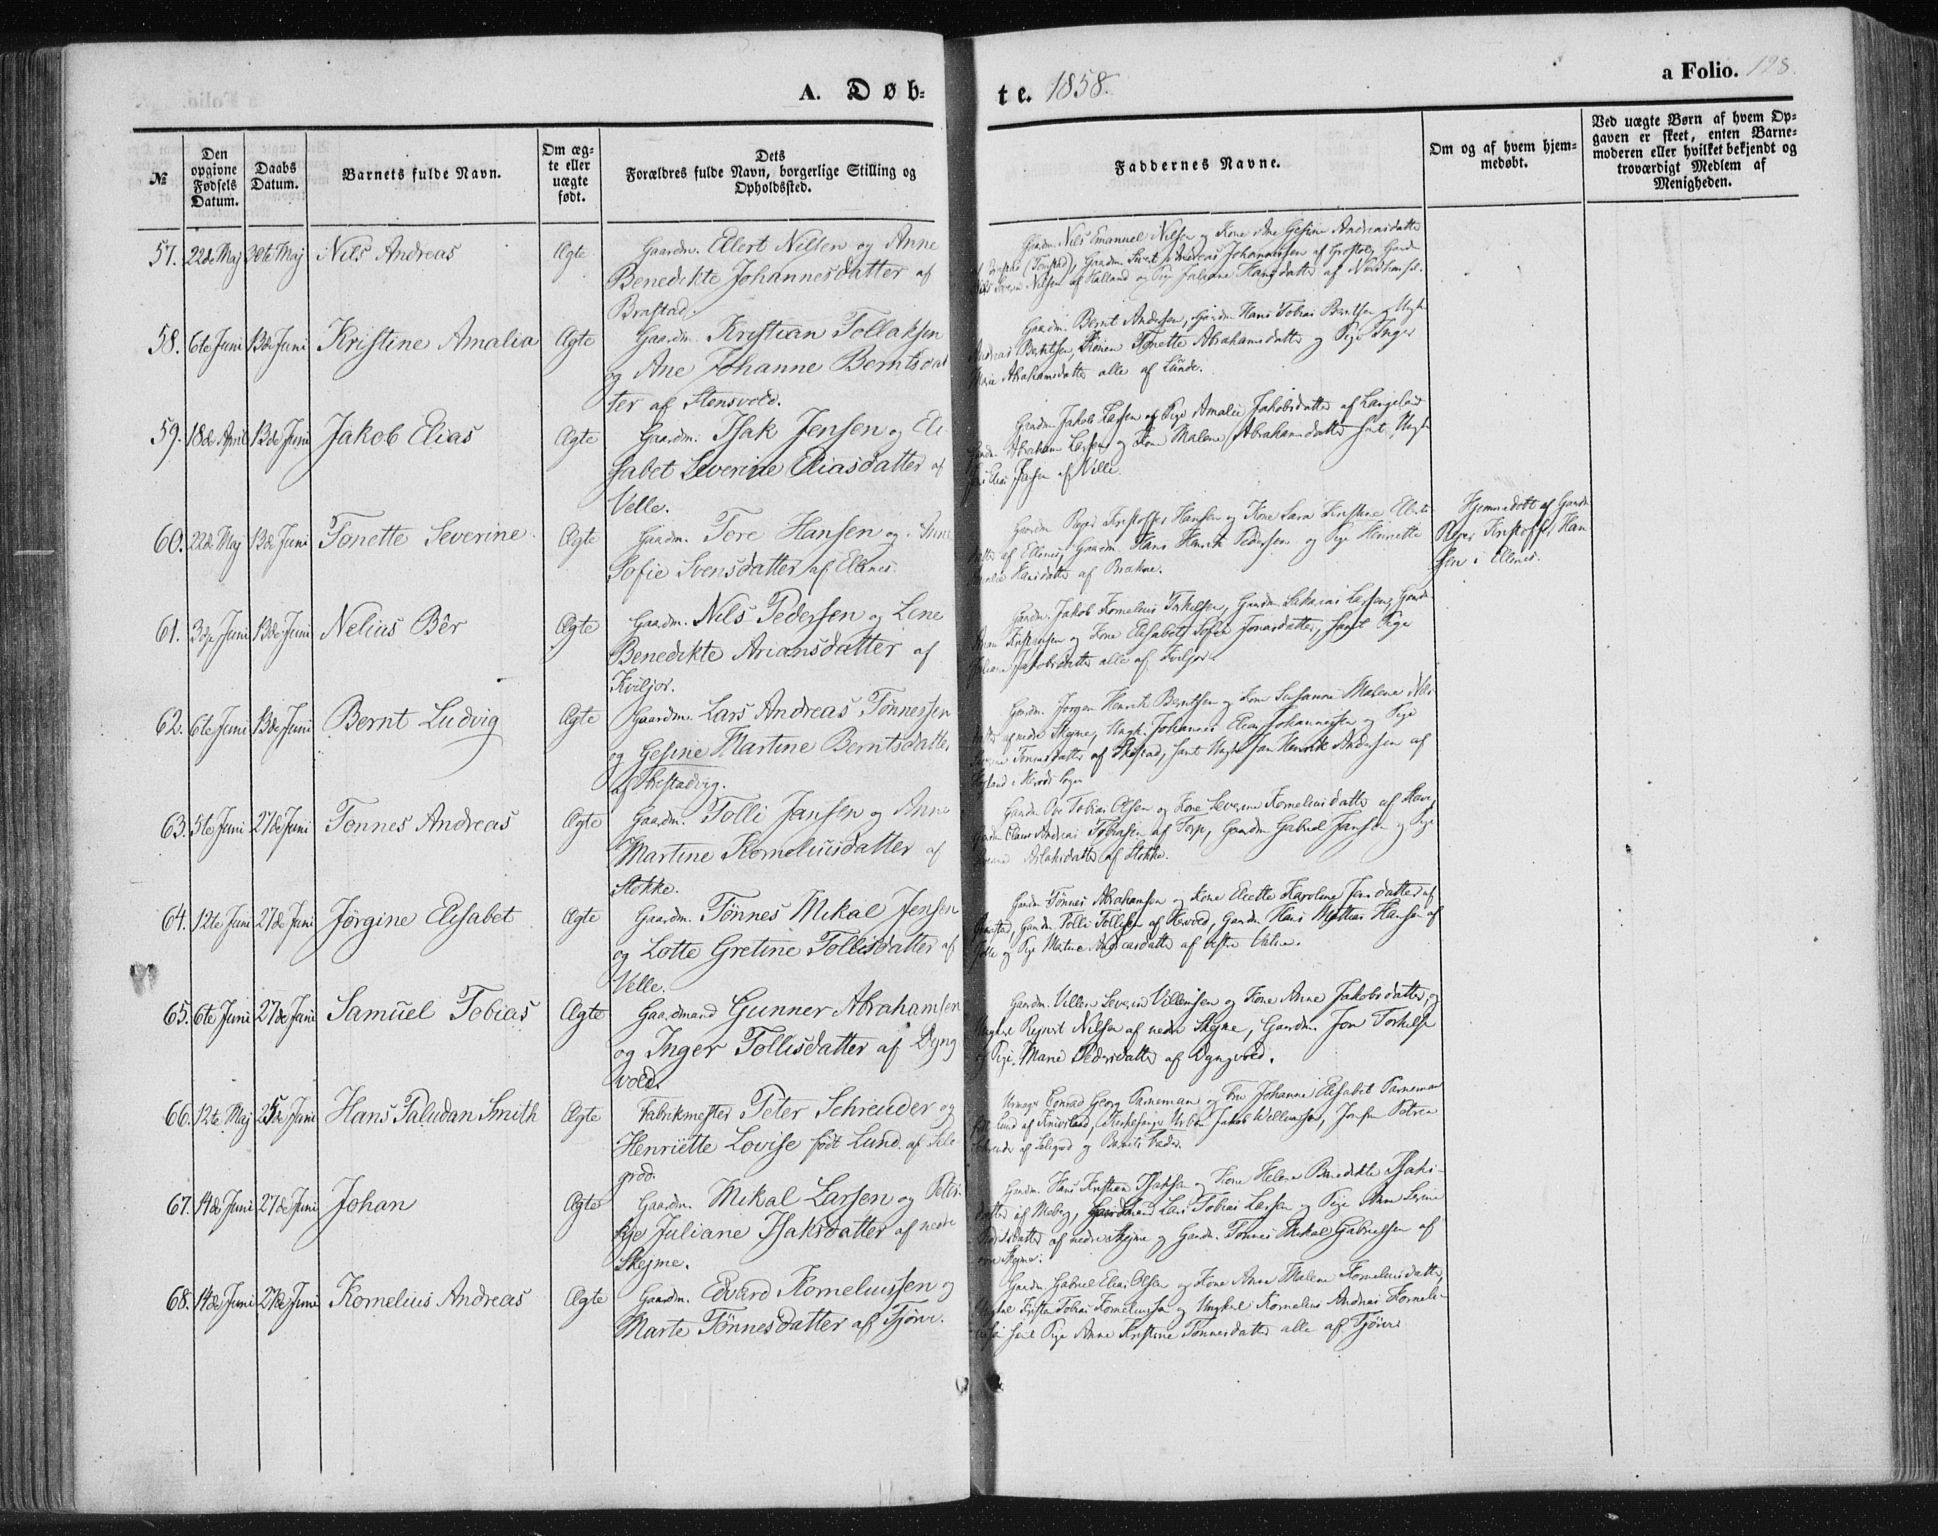 A. Døb-
te. 1858.
a Folio. 128.
№
Den opgivne Fødsels Datum.
Daabs Datum.
Barnets fulde Navn.
Om ægte eller uægte født.
Dets Forældres fulde Navn, borgerlige Stilling og Opholdssted.
Faddernes Navne.
Om og af hvem hjemmedøbt.
Ved uægte Børn af hvem Opgaven er skeet, enten Barnemoderen eller hvilket bekjendt og troværdigt Medlem af Menigheden.
57. 22de Maj 30te Maj Nils Andreas Ægte Gaardm. Ellert Nilsen og Anne
Benedikte Johannesdatter af
Brastad.
Gaardm. Nils Emanuel Nilsen og Kone Ane Gesine Andreasdatter
Nilsen af Halland og Pige Juliane Hansdatter af
58. 6te Juni 13de Juni Kristine Amalia Ægte Gaardm. Kristian Tollaksen
og Ane Johanne Berntsdat
ter af Stensvold.
Gaardm. Bernt Andersen, Gaardm. Hans Tobias Berntsen og Ungk.
Andreas Berntsen, Konen Tonette Abrahamsdatter og Pige Inger
Marie Abrahamsdatter alle af Lunde.
59. 18de April 13de Juni Jakob Elias Ægte Gaardm. Isak Jensen og Eli
sabet Severine Eliasdatter af
Velle.
Gaardm. Jakob Larsen og Pige Amalie Jakobsdatter af Langeland
Gaardm. Abraham Larsen og Kone Malene Abrahamsdatter samt Ungk.
Elias af Velle
60. 22de Maj 13de Juni Tonette Severine Ægte Gaardm. Tore Hansen og Anne
Sofie Svensdatter af Ellenes.
Gaardm. Reier Kristoffer Hansen og Kone Sara Kristine Ellerts
datter af Ellenes, Gaardm. Hans Henrik Pedersen og Pige Henriette
Hansdatter af Brekne.
Hjemmedøbt af Gaardm.
Reier Kristoffer Han
sen i Ellenes.
61. 3die Juni 13de Juni Nelius Bêr Ægte Gaardm. Nils Pedersen og Lene
Benedikte Ariansdatter af
Kviljor.
Gaardm. Jakob Kornelius Torkelsen, Gaardm. Sakarias Larsen, Gaardm.
og Kone Elisabet Sofie Jonasdatter, samt Pige
Jakobsdatter alle af Kviljor.
62. 6te Juni 13de Juni Bernt Ludvig Ægte Gaardm. Lars Andreas Tønnessen
og Gesine Martine Berntsdatter
af
Gaardm. Jørgen Henrik Berntsen og Kone Susanne Malene Nils
datter af nedre Skejme, Ungk. Johannes Elias Johannessen og Pige
Tønnesdatter af samt Ungk. Jan Henrik Andersen af
Sogn
63. 5te Juni 27de Juni Tønnes Andreas Ægte Gaardm. Tolli Jansen og Anne
Martine Korneliusdatter af
Stokke.
Gaardm. Ole Tobias Olsen og Kone Severine Korneliusdatter af
Gaardm. Claus Andreas Tobiasen af Torp, Gaardm. Gabriel Jansen og Pige
Aslaksdatter af Stokke.
64. 12te Juni 27de Juni Jørgine Elisabet Ægte Gaardm. Tønnes Mikal Jensen
og Lotte Gretine Tollisdatter af
Velle.
Gaardm. Tønnes Abrahamsen og Kone Karoline Jansdatter af
Gaardm. Tolli Tollisen af Gaardm. Hans Mathias Hansen af
Velle og Pige Andreasdatter af
65. 6te Juni 27de Juni Samuel Tobias Ægte Gaardmand Gunner Abrahamsen
og Inger Tollisdatter af Dyng
vold.
Gaardm. Villem Severin Villemsen og Kone Anne Jakobsdatter, og
Ungkarl Reinert Nilsen af nedre Skejme, Gaardm. Jon Torkelse
og Pige Marie Pedersdatter af Dyngvold.
66. 12te Maj 25de Juni Hans Paludan Smith Ægte Fabrikmester Peter Schreuder og
Henriette Lovise født Lund af Sele
grød.
Conrad Georg Parneman og Frue Johanne Elisabet Parneman
født Lund af Kirkesanger Urban Jakob Willumsen, Jomfru Petrea
Schreuder af Selegrød og Barnets Fader.
67. 14de Juni 27de Juni Johan Ægte Gaardm. Mikal Larsen og Petri
kje Juliane Isaksdatter af nedre
Skejme.
Gaardm. Hans Kristian Isaksen og Kone Helene Benedikte Isaks-
datter af Meberg, Gaardmand Lars Tobias Larsen og Pige Anne Serine
af nedre Skejme og Gaardm. Tønnes Mikal Gabrielsen af
Skejme.
68. 14de Juni 27de Juni Kornelius Andreas Ægte Gaardm. Edvard Korneliussen og
Marte Tønnesdatter af Tjørve.
Gaardm. Gabriel Elias Olsen og Kone Anne Malene Korneliusdatter,
Ungkarl Tobias Korneliussen og Ungkarl Kornelius Andreas Korneli-
ussen samt Pige Anne Kristine Tønnesdatter alle af Tjørve